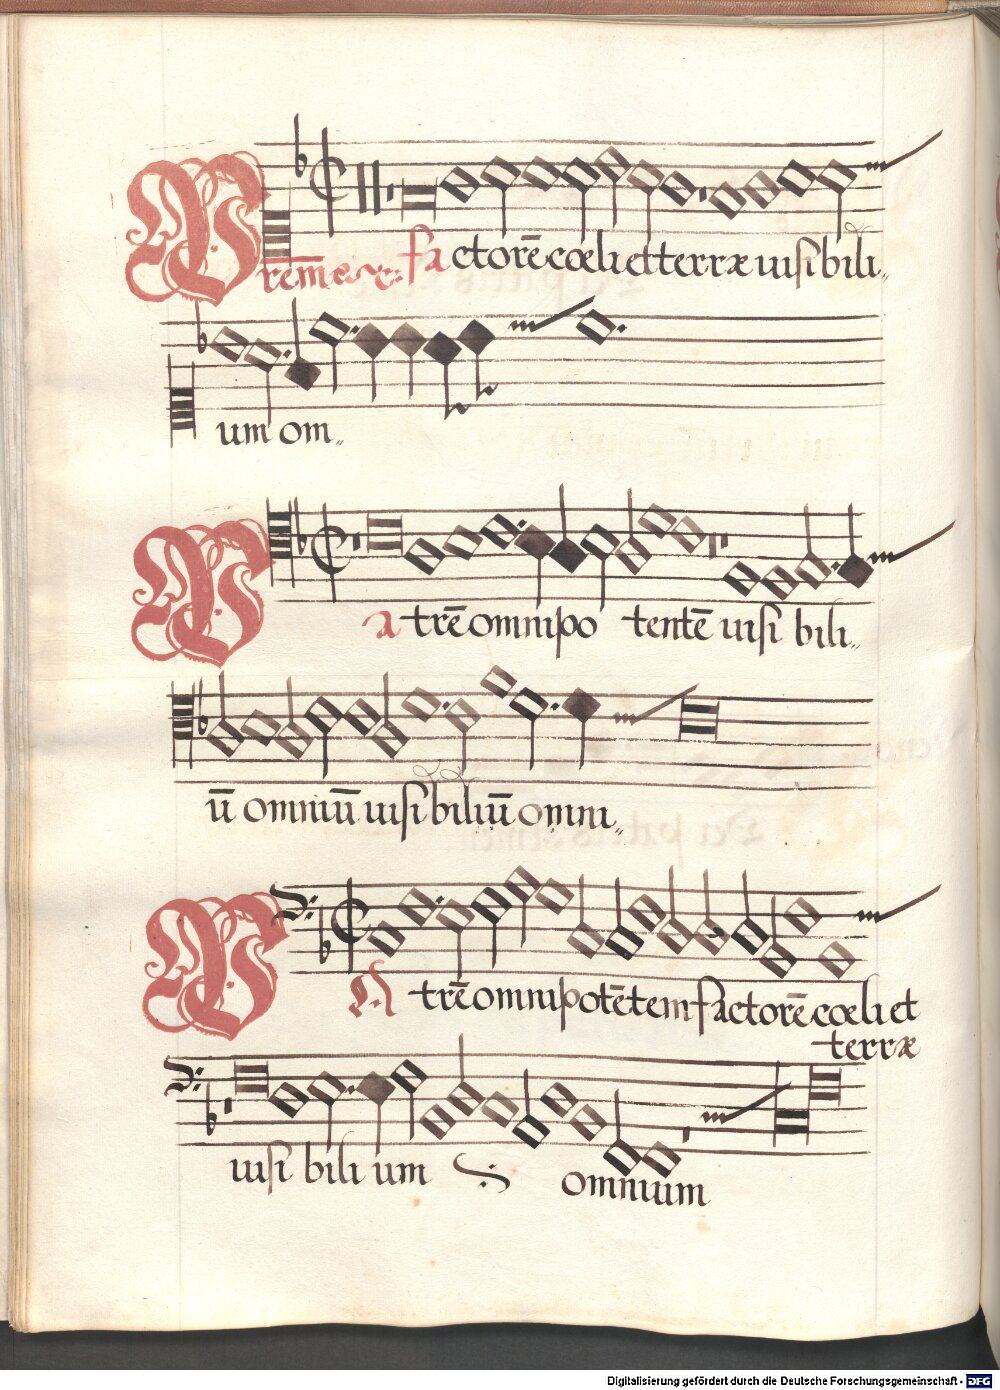 Prem̄ ex. factorē cœli et terræ uisibili„
um om„
Patrē omnipo tentē uisi bili„
ū omniū uisibiliū omni„
PAtrē omnipotētem factorē cœli et
terræ
uisi bili um omnium
Digitalisierung gefördert durch die Deutsche Forschungsgemeinschaft - DFG